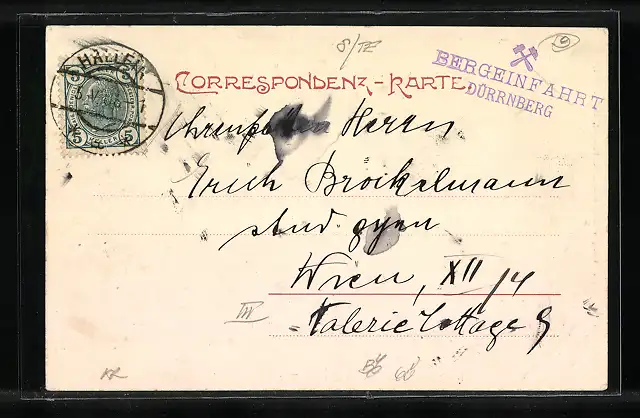 8/TE
9
BERGEINFAHRT
DÜRRNBERG
HALLEIN
5 5
5 HELLER 5
CORRESPONDENZ-KARTE.
Herrn
Erich Bröckelmann
stud. gym
Wien, XII/4
Valerie Cottage 9
III